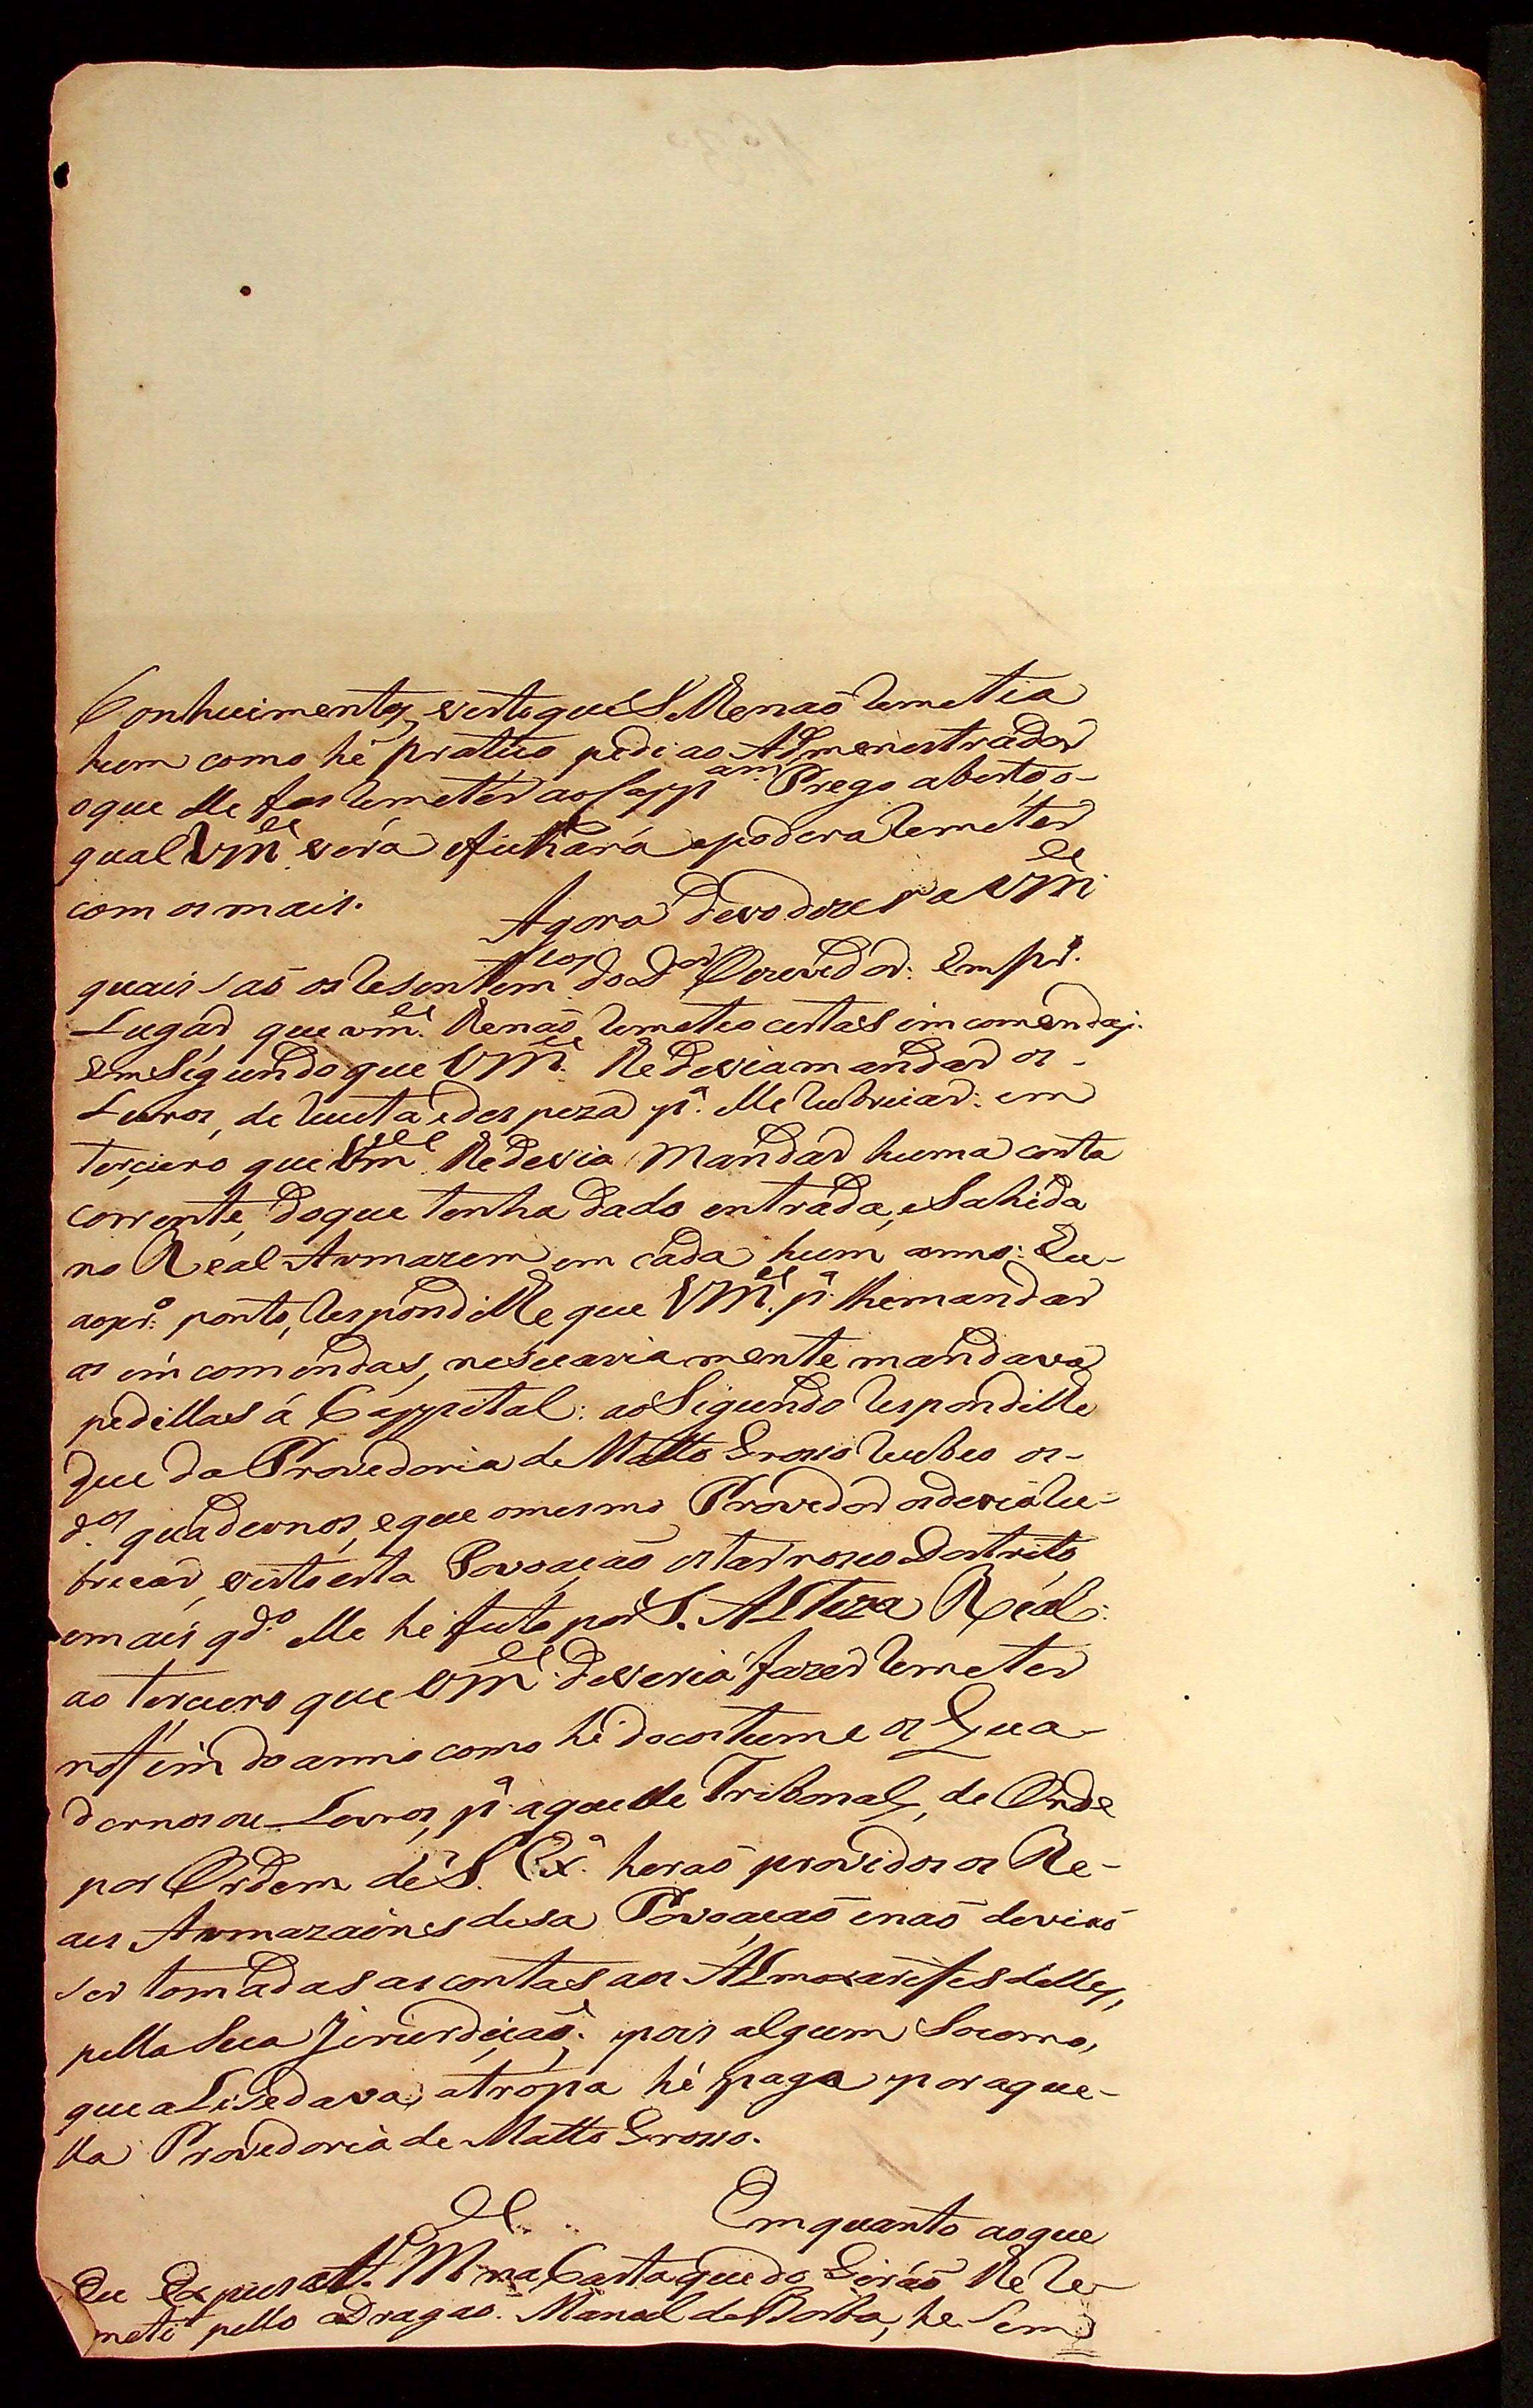 Conhecimentos, visto que S. Me naõ remetia
hum como hé pratico pedi ao Admenistrador
o que lle fes remeter ao Capp.am Prego aberto, o-
qual VM.ce verá efichará epodera remeter
com os mais.
Agora devo dizer a VM.ce
quais saõ os resentem.tos do D.or Ouvedor: Em pr.
Lugar que vm.ce lle naõ remeteo certas emcomendas:
em Sigundo que VM.ce lle devia mandar os-
Livros, de receita e despeza p.a elle rubricar: em
terceiro que Vm.ce lle devia Mandar huma conta
corrente, doque tenha dado entrada, e Sahida
no Real Armazem em cada hum anno: Eu-
aopr.o ponto, respondi lle que VM.ce p.a lhe mandar
as emcomendas, nescariamente mandava
pedillas á Cappital: ao Sigundo respondi lle
que da Provedoria de Matto Groso recebeo os-
d.os quadernos, eque omesmo Provedor os devia ru-
bricar, visto esta Povoaçaõ estar noseo Destrito,
emais qd.o elle he feito por S. ALteza Real:
ao terceiro que VM.ce deveria fazer remeter
nofim do anno como hé do costume os Qua-
dernos ou Livros, p.a aquelle Tribonal, de Onde
por Ordem de S. Ex.a heraõ providos os Re-
aes Armazaines desa Povoaçaõ enaõ deviaõ
ser tomadas as contas aos ALmoxarifes delles,
pella Sua Jurisdiçaõ: pois algum Socorro,
que aLi sedava, atropa hé paga por aque-
lla Provedoria de Matto Groso.
Emquanto aoque
Eu Expus a V. M.ce na Carta que do Giráo lle re-
meti pello Dragaõ Manoel de Borba, he Sem